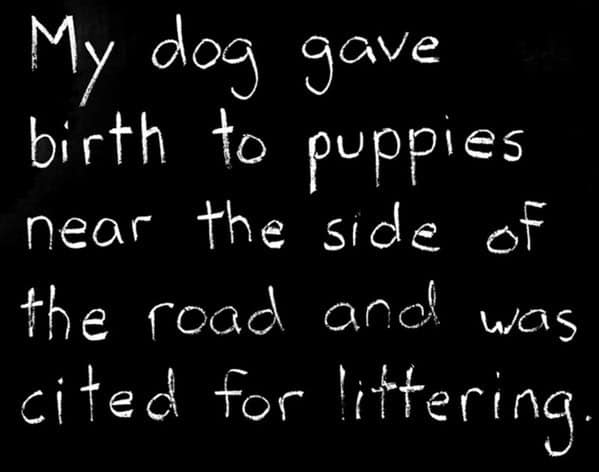 My dog gave
birth to puppies
near the side of
the road and was
cited for littering.